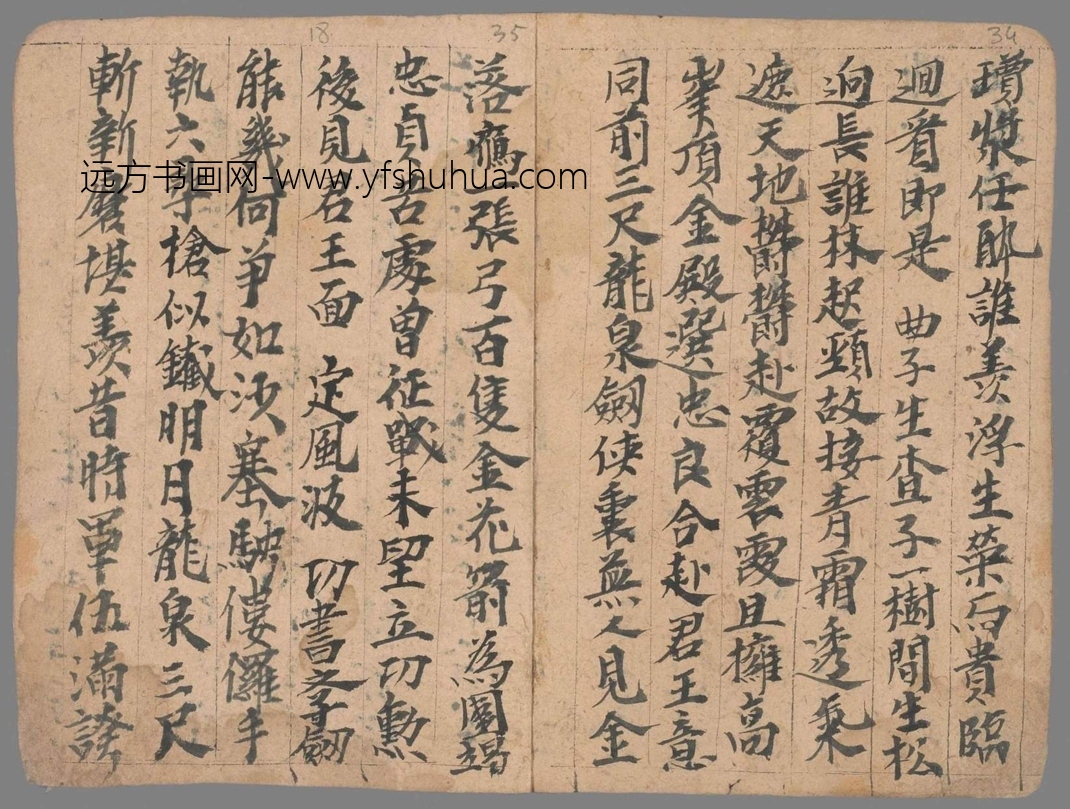 34
瓊漿任酏誰羨浮生榮而貴臨
迴看即是 曲子生查子一樹間生松
迥長誰抹起頸故接青霜透氣
遮天地欝欝赴覆雲霞且擁高
峯頂金殿選忠良合赴君王意
同前三尺龍泉劍俠裏無人見金
35
落鴈一張弓百隻金花箭為國竭
忠貞苦處曾征戰未望立功勳
後見君王面 定風波 功書學劍
能幾何爭如沙塞騁僂儸手
執六尋槍似鐵明月龍泉三尺
斬新磨堪羨昔時軍伍滿誇
18
远方书画网-www.yfshuhua.com